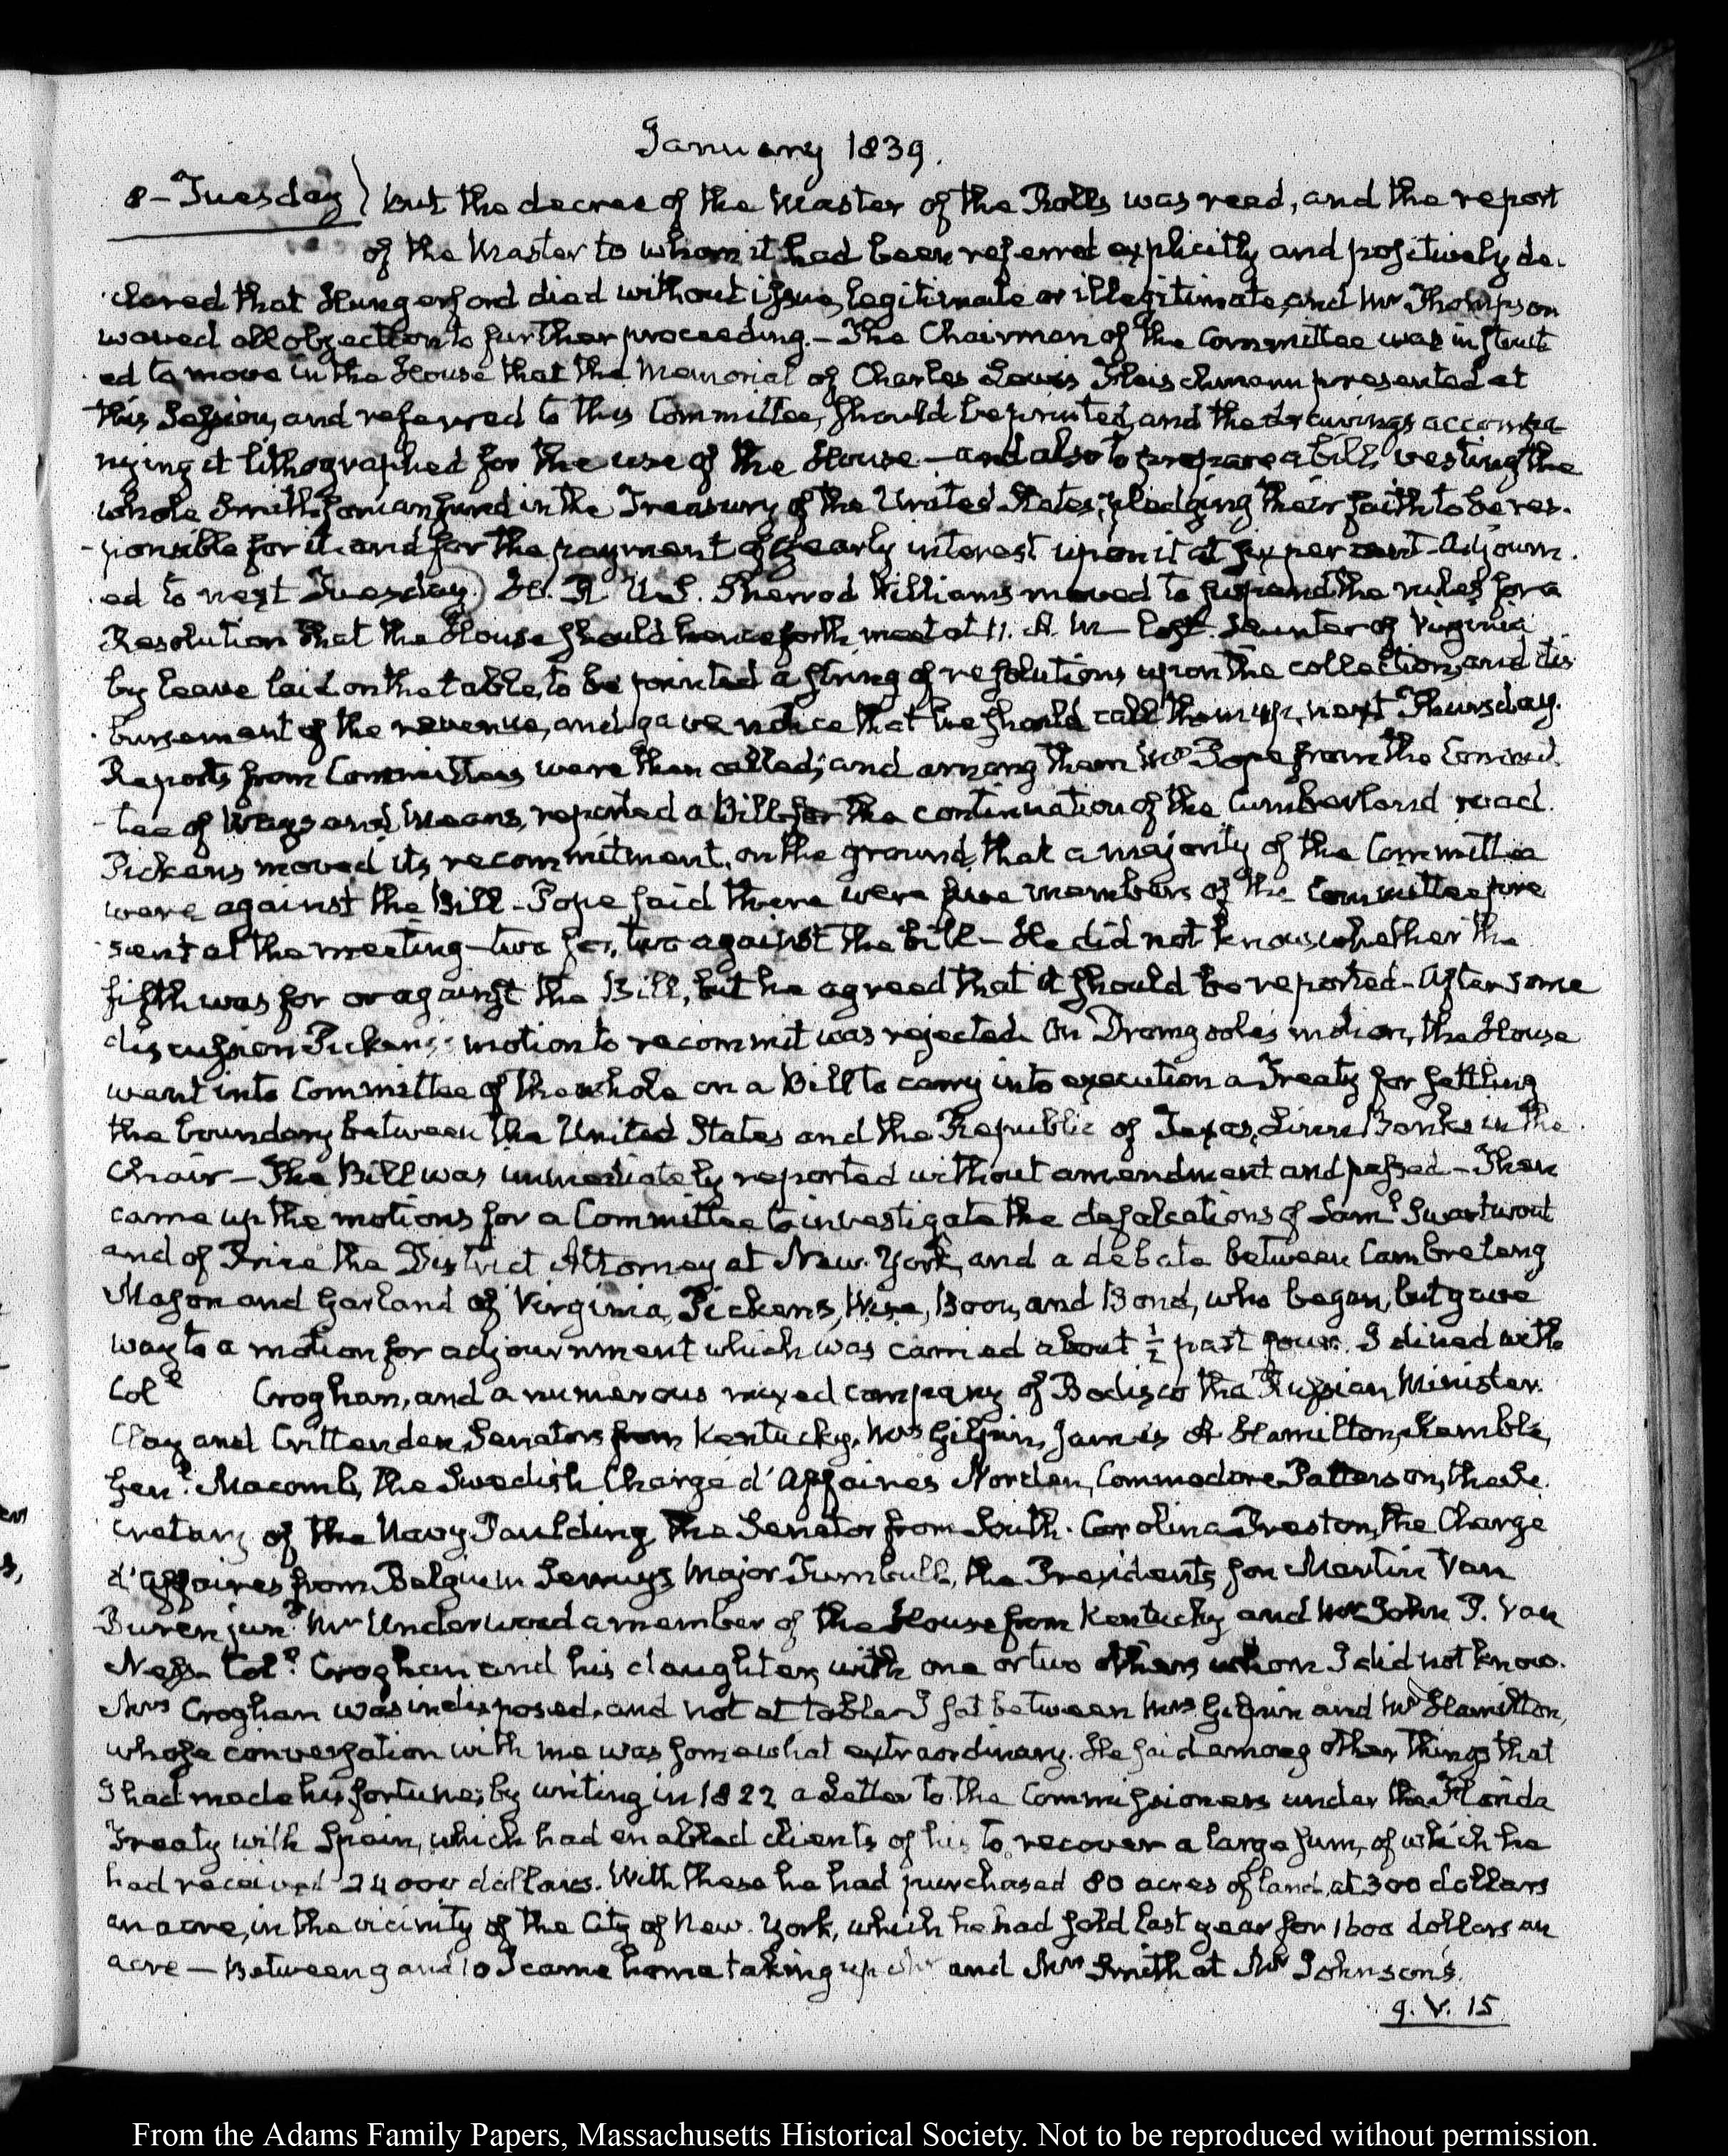 January 1839.
8 - Tuesday) but the decree of the Master of the Rolls was read, and the report
of the Master to whom it had been referred explicitly and positively de-
clared that Hungerford died without issue, legitimate or illegitimate, and Mr Thompson
waved all objection to further proceeding. - The Chairman of the Committee was instruct
ed to move in the House that the Memorial of Charles Lewis Fleischmann presented at
this Session, and referred to this Committee, should be printed, and the drawings accompa
nying it lithographed for the use of the House - and also to prepare a bill vesting the
whole Smithsonian fund in the Treasury of the United States; pledging their faith to be res-
ponsible for it and for the payment of yearly interest upon it at six per cent - Adjourn-
ed to next Tuesday.) H. R. U.S. Sherrod Williams moved to suspend the rules for a
Resolution that the House should henceforth meet at 11. A. M - lost. Hunter of Virginia
by leave laid on the table, to be printed a string of resolutions upon the collection, and dis
bursement of the revenue, and gave notice that he should call them up, next Thursday.
Reports from Committees were then called; and among them Mr Pope from the Commit-
tee of Ways and Means, reported a Bill for the continuation of the Cumberland road.
Pickens moved its recommitment, on the ground that a majority of the Committee
were against the Bill - Pope said there were five members of the Committee pre
sent at the meeting - two for, two against the bill - He did not know whether the
fifth was for or against the Bill, but he agreed that it should be reported - After some
discussion Pickens's motion to recommit was rejected. On Dromgoole's motion, the House
went into Committee of the whole on a Bill to carry into execution a Treaty for settling
the boundary between the United States and the Republic of Texas, Linn Banks in the
Chair - The Bill was immediately reported without amendment and passed - Then
came up the motions for a Committee to investigate the defalcations of Saml Swartwout
and of Price the District Attorney at New-York, and a debate between Cambreleng
Mason and Garland of Virginia, Pickens, Wise, Boon, and Bond, who began, but gave
way to a motion for adjournment which was carried about ½ past four. I dined with
Coll Croghan, and a numerous mixed company of Bodisco the Russian Minister.
Clay and Crittenden, Senators from Kentucky, Mrs Gilpin, James A Hamilton, Kemble,
Genl Macomb, the Swedish Chargé d'Affaires Nordin, Commodore Patterson, the Se-
cretary of the Navy Paulding, the Senator from South-Carolina Preston, the Charge
d'affaires from Belgium Serruys Major Turnbull, the President's son Martin Van
Buren junr Mr Underwood a member of the House from Kentucky and Mr John P. Van
Ness. Coll Croghan and his daughter, with one or two others whom I did not know.
Mrs Croghan was indisposed, and not at table. I sat between Mrs Gilpin and Mr Hamilton,
whose conversation with me was somewhat extraordinary. He said among other things that
I had made his fortune; by writing in 1822 a Letter to the Commissioners under the Florida
Treaty with Spain, which had enabled clients of his to recover a large sum, of which he
had received 24000 dollars. With these he had purchased 80 acres of land, at 300 dollars
an acre, in the vicinity of the City of New-York, which he had sold last year for 1600 dollars an
acre - Between 9 and 10 I came home taking up Mr and Mrs Smith at Mr Johnson's.
q. V. 15
From the Adams Family Papers, Massachusetts Historical Society. Not to be reproduced without permission.